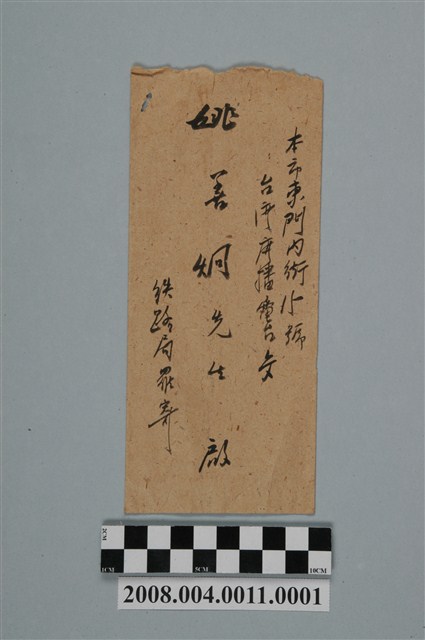 本市東門內街15號
台湾廣播電台交
姚善炯先生 啟
鉄路局羅寄
2CM
1CM
5CM
10CM
2008.004.0011.0001